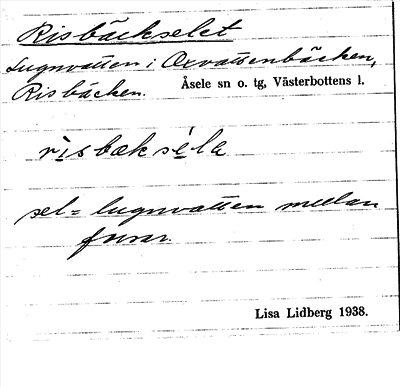 Risbäckselet
Lugnvatten i Oxvattsenbäcken,
Risbäcken. Åsele sn o. tg, Västerbottens l.
risbæk sela
sel = lugnvatten mellan
forsar.
Lisa Lidberg 1938.